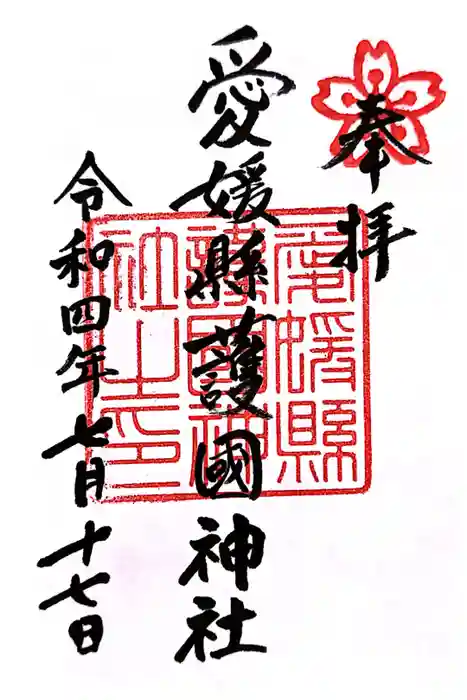 奉拝
愛媛縣護國神社
令和四年七月十七日
愛媛縣
護國神
社之印